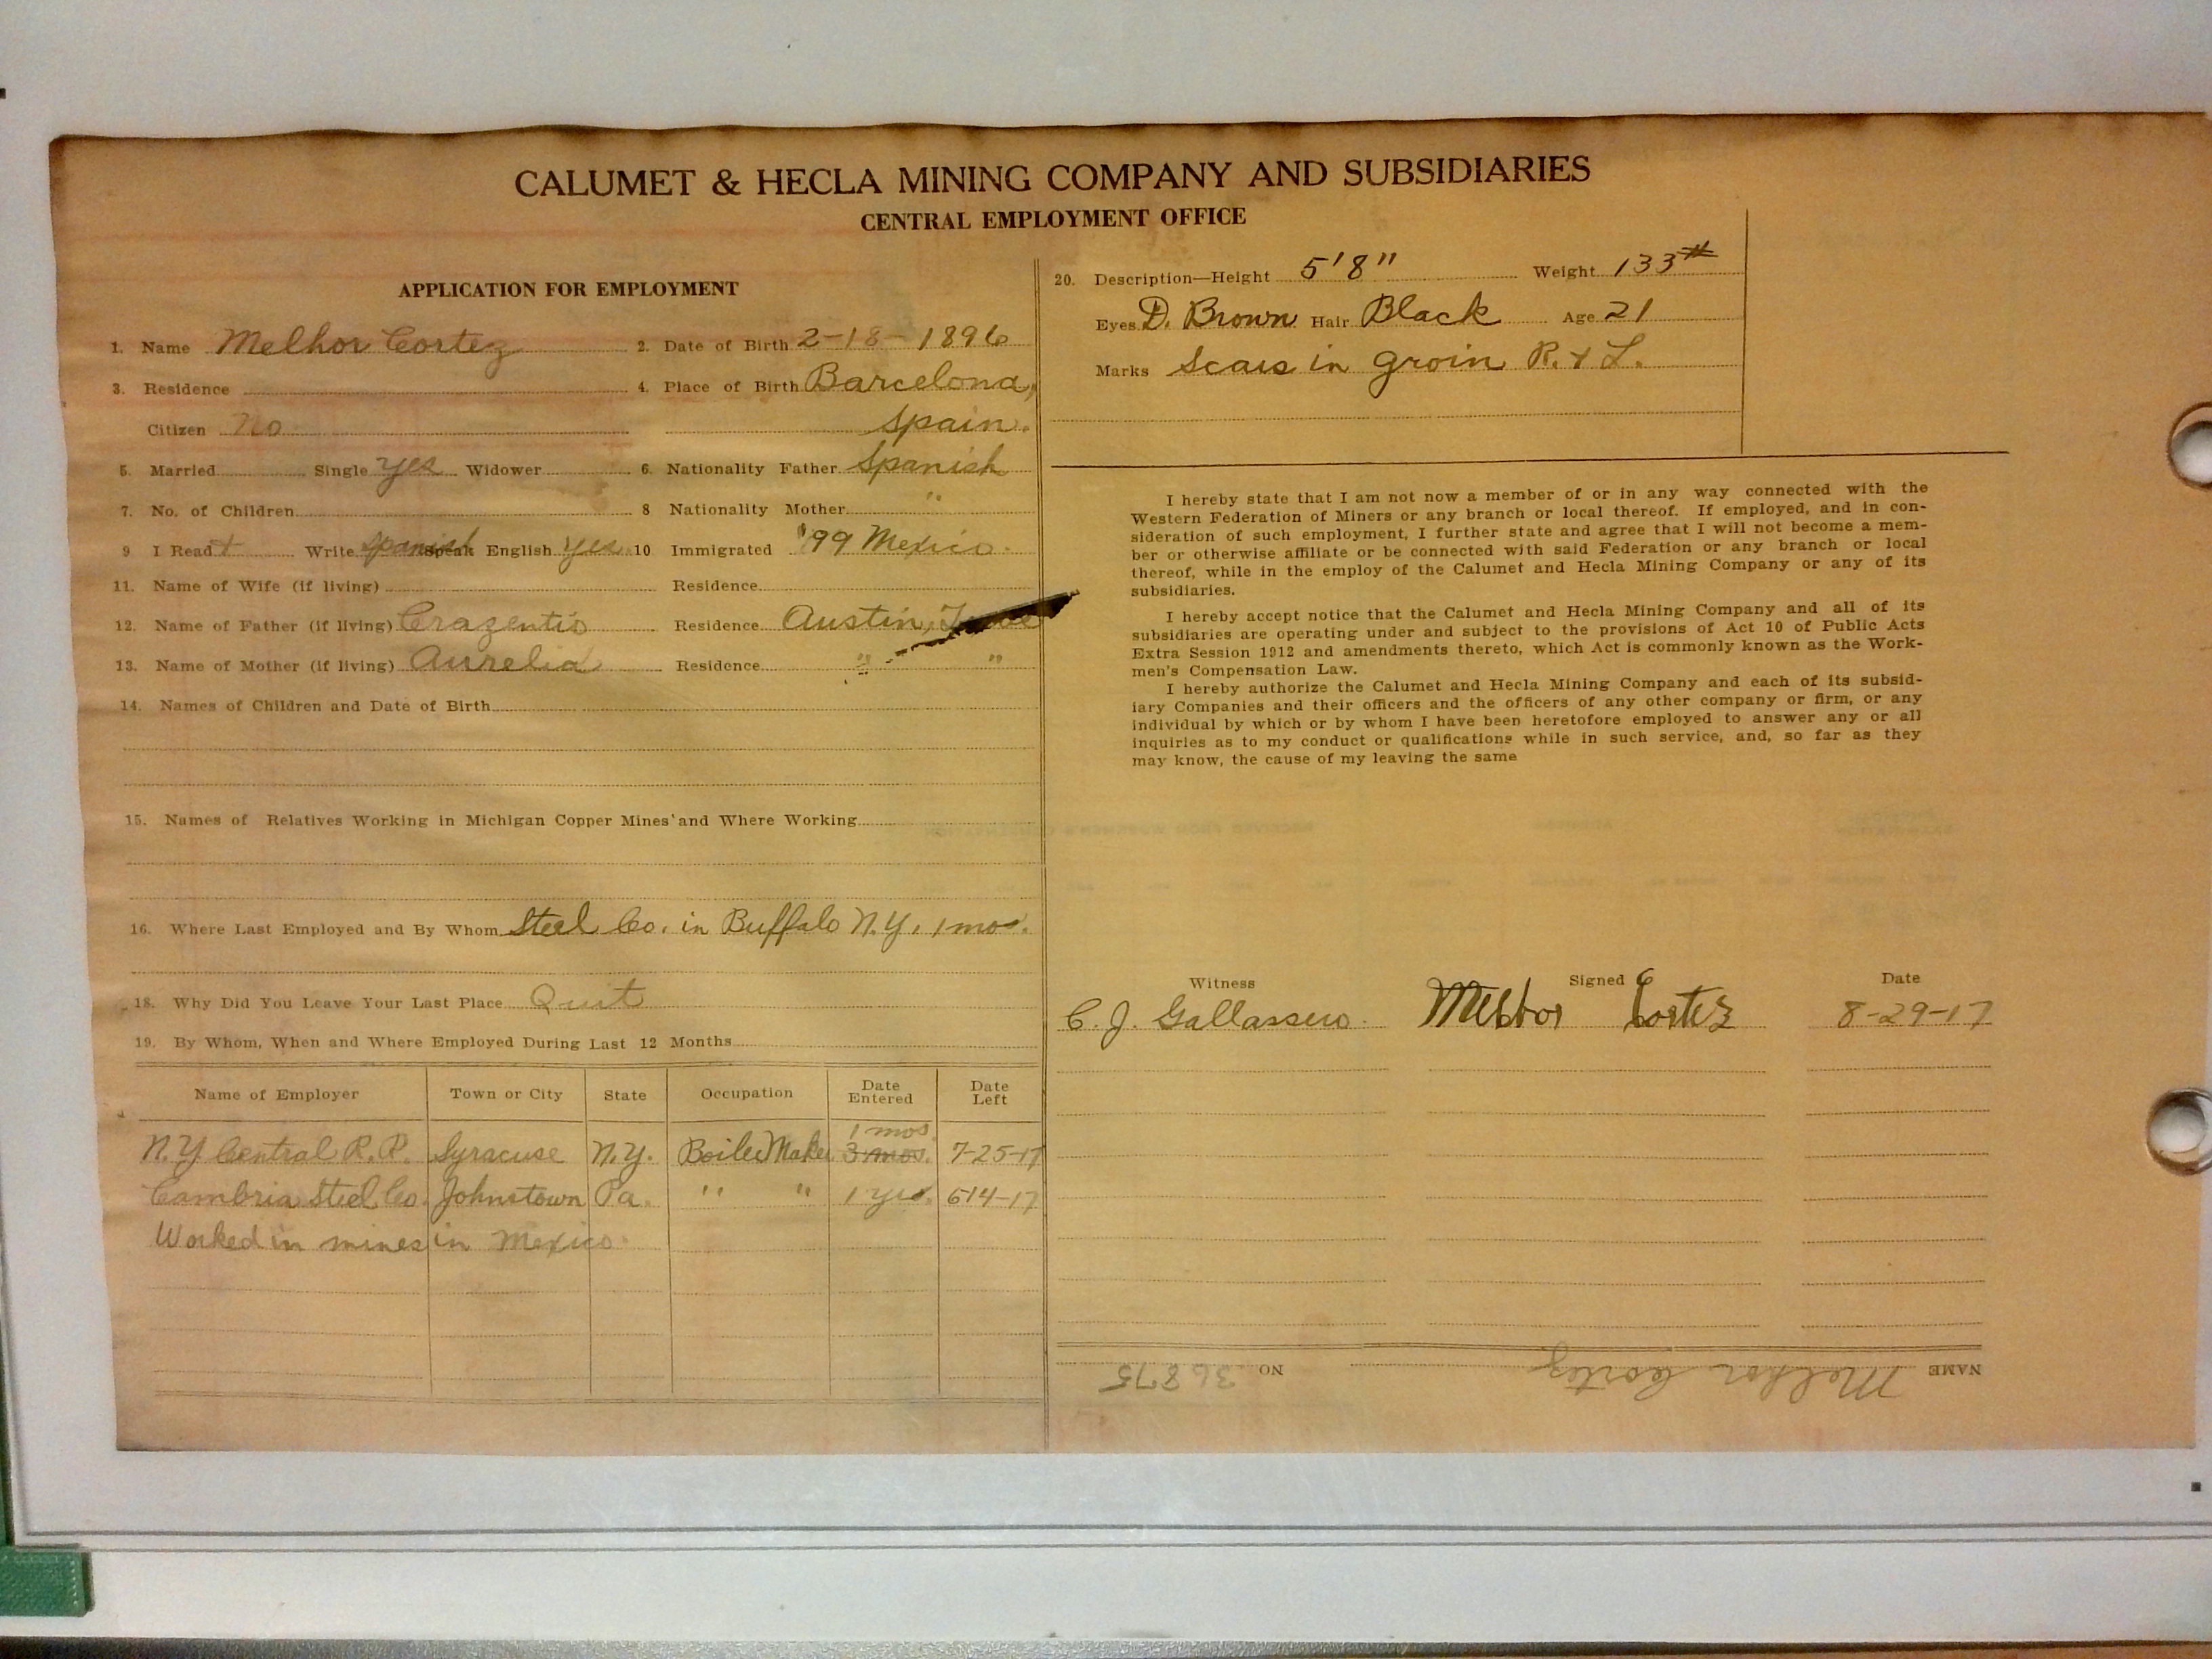 CALUMET & HECLA MINING COMPANY AND SUBSIDIARIES
CENTRAL EMPLOYMENT OFFICE
APPLICATION FOR EMPLOYMENT
1. Name Melhor Cortez 2. Date of Birth 2-18-1896
3. Residence 4. Place of Birth Barcelona,
Citizen No Spain.
5. Married Single yes Widower 6. Nationality Father Spanish
7. No. of Children 8 Nationality Mother "
9 I Read + Write Spanish Speak English yes 10 Immigrated '99 Mexico.
11. Name of Wife (if living) Residence
12. Name of Father (if living) Crazentio Residence Austin,
13. Name of Mother (if living) Aurelia Residence " "
14. Names of Children and Date of Birth
15. Names of Relatives Working in Michigan Copper Mines and Where Working
16. Where Last Employed and By Whom Steel Co. in Buffalo N.Y. 1 mos.
18. Why Did You Leave Your Last Place Quit
19. By Whom, When and Where Employed During Last 12 Months
Name of Employer Town or City State Occupation Date Entered Date Left
1 mos.
N.Y Central R.R. Syracuse N.Y. Boiler Maker 3 mos. 7-25-17
Cambria Steel Co. Johnstown Pa. " " 1 yrs. 614-17
Worked in mines in Mexico.
20. Description—Height 5'8" Weight 133#
Eyes D. Brown Hair Black Age 21
Marks Scars in groin R. & L.
I hereby state that I am not now a member of or in any way connected with the
Western Federation of Miners or any branch or local thereof. If employed, and in con-
sideration of such employment, I further state and agree that I will not become a mem-
ber or otherwise affiliate or be connected with said Federation or any branch or local
thereof, while in the employ of the Calumet and Hecla Mining Company or any of its
subsidiaries.
I hereby accept notice that the Calumet and Hecla Mining Company and all of its
subsidiaries are operating under and subject to the provisions of Act 10 of Public Acts
Extra Session 1912 and amendments thereto, which Act is commonly known as the Work-
men's Compensation Law.
I hereby authorize the Calumet and Hecla Mining Company and each of its subsid-
iary Companies and their officers and the officers of any other company or firm, or any
individual by which or by whom I have been heretofore employed to answer any or all
inquiries as to my conduct or qualifications while in such service, and, so far as they
may know, the cause of my leaving the same
Witness Signed Date
C. J. Gallassero Melhor Cortez 8-29-17
NAME Melhor Cortez NO 36875